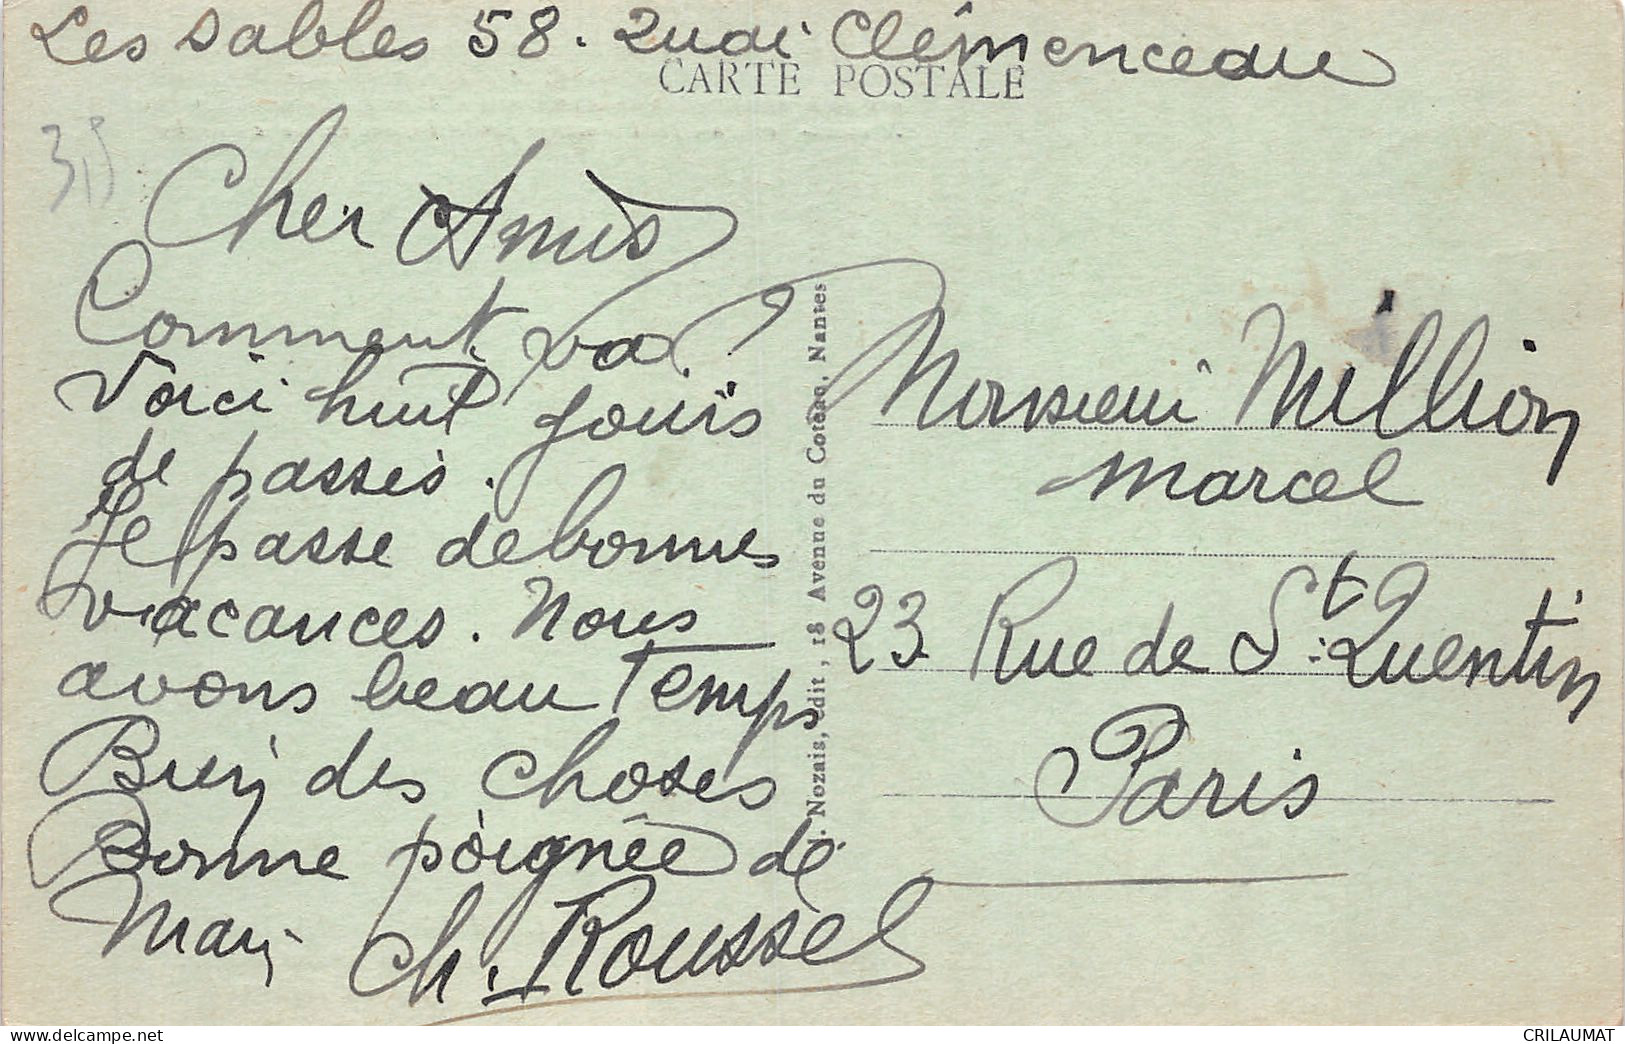 Les Sables 58. Quai Clémenceau
CARTE POSTALE
3,5
Cher Amis
Comment va ?
Voici huit jours
de passés.
Je passe de bonnes
vacances. Nous
avons beau Temps
Bien des choses
Bonne poignée de
Main
Ch. Roussel
Nozais, édit, 18 Avenue du Coteau, Nantes
Monsieur Million
Marcel
23 Rue de St. Quentin
Paris
www.delcampe.net
CRILAUMAT